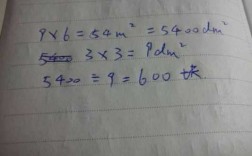 9×6=54m²=5400dm²
3×3=9dm²
5400÷9=600 块